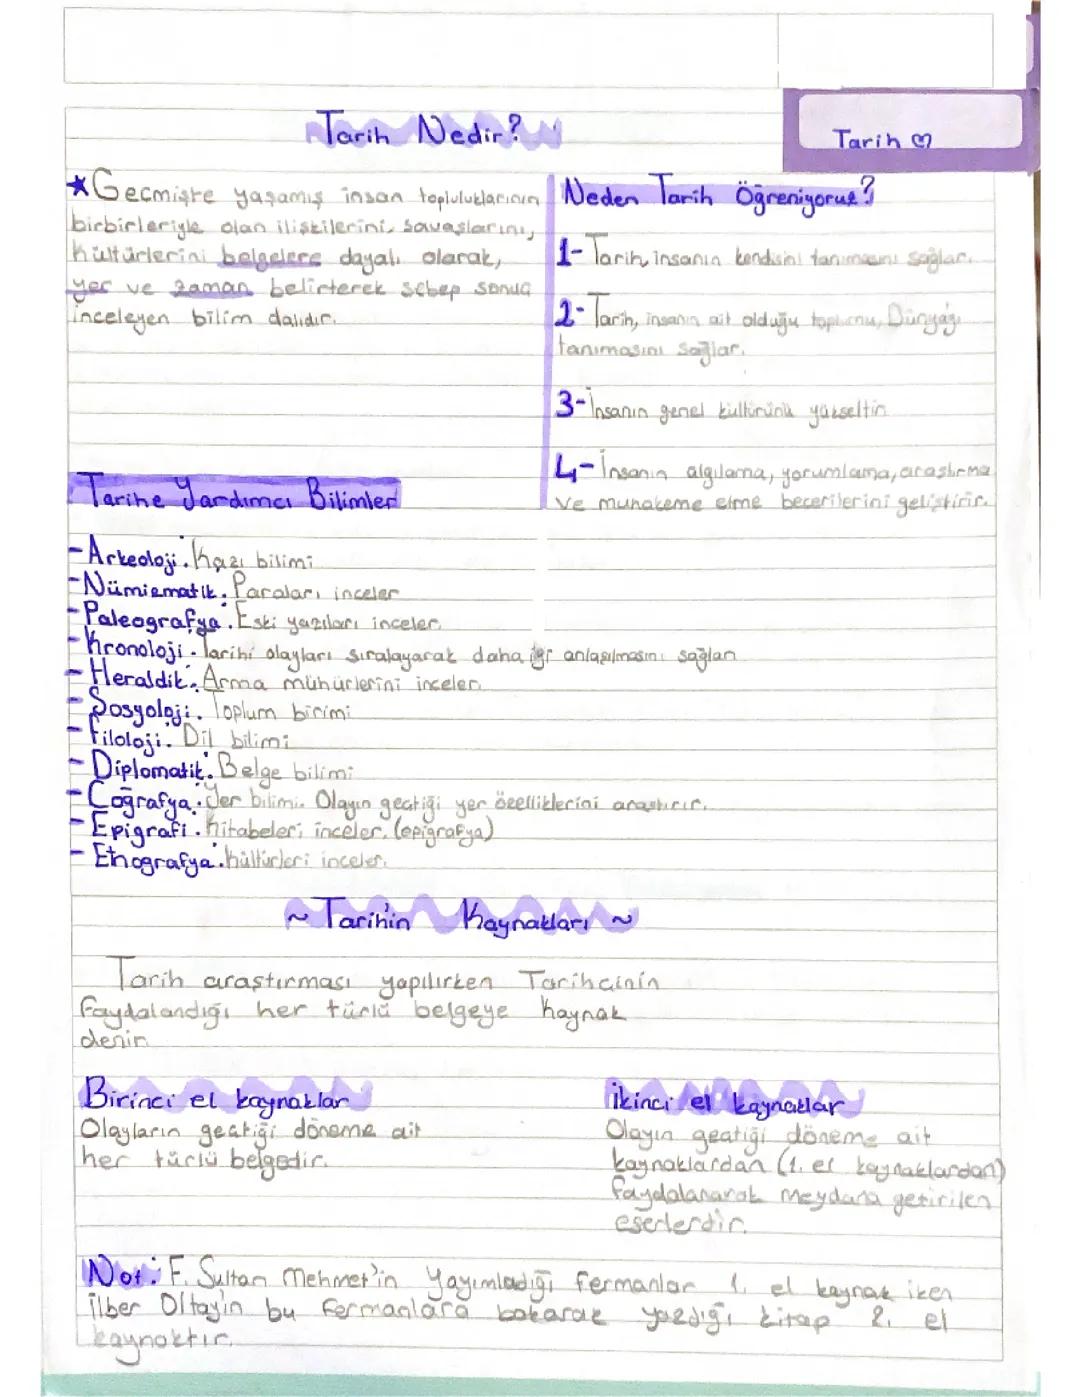 Tarih ♡
Tarih Nedir?
★Geçmişte yaşamış insan topluluklarının
birbirleriyle olan ilişkilerini, savaşlarını,
kültürlerini belgelere dayalı olarak,
yer ve zaman belirterek sebep sonuç
inceleyen bilim dalıdır.
Neden Tarih Öğreniyoruz?
1- Tarih, insanın kendisini tanımasını sağlar.
2- Tarih, insanın ait olduğu toplumu, Dünyayı
tanımasını sağlar.
3- İnsanın genel kültürünü yükseltir.
4- İnsanın algılama, yorumlama, araştırma
ve muhakeme etme becerilerini geliştirir.
Tarihe Yardımcı Bilimler
- Arkeoloji: Kazı bilimi
- Nümizmatik: Paraları inceler
- Paleografya: Eski yazıları inceler.
- Kronoloji: Tarihi olayları sıralayarak daha iyi anlaşılmasını sağlar
- Heraldik: Arma mühürlerini inceler.
- Sosyoloji: Toplum birimi
- Filoloji: Dil bilimi
- Diplomatik: Belge bilimi
- Coğrafya: Yer bilimi. Olayın geçtiği yer özelliklerini araştırır.
- Epigrafi: Kitabeleri inceler. (epigrafya)
- Etnografya: kültürleri inceler.
~ Tarih'in Kaynakları ~
Tarih araştırması yapılırken Tarihçinin
faydalandığı her türlü belgeye kaynak
denir.
Birinci el kaynaklar
Olayların geçtiği döneme ait
her türlü belgedir.
İkinci el kaynaklar
Olayın geçtiği döneme ait
kaynaklardan (1. el kaynaklardan)
faydalanarak meydana getirilen
eserlerdir.
Not: F. Sultan Mehmet'in Yayımladığı fermanlar 1. el kaynak iken
İlber Oltay'ın bu fermanlara bakarak yazdığı kitap 2. el
kaynaktır.